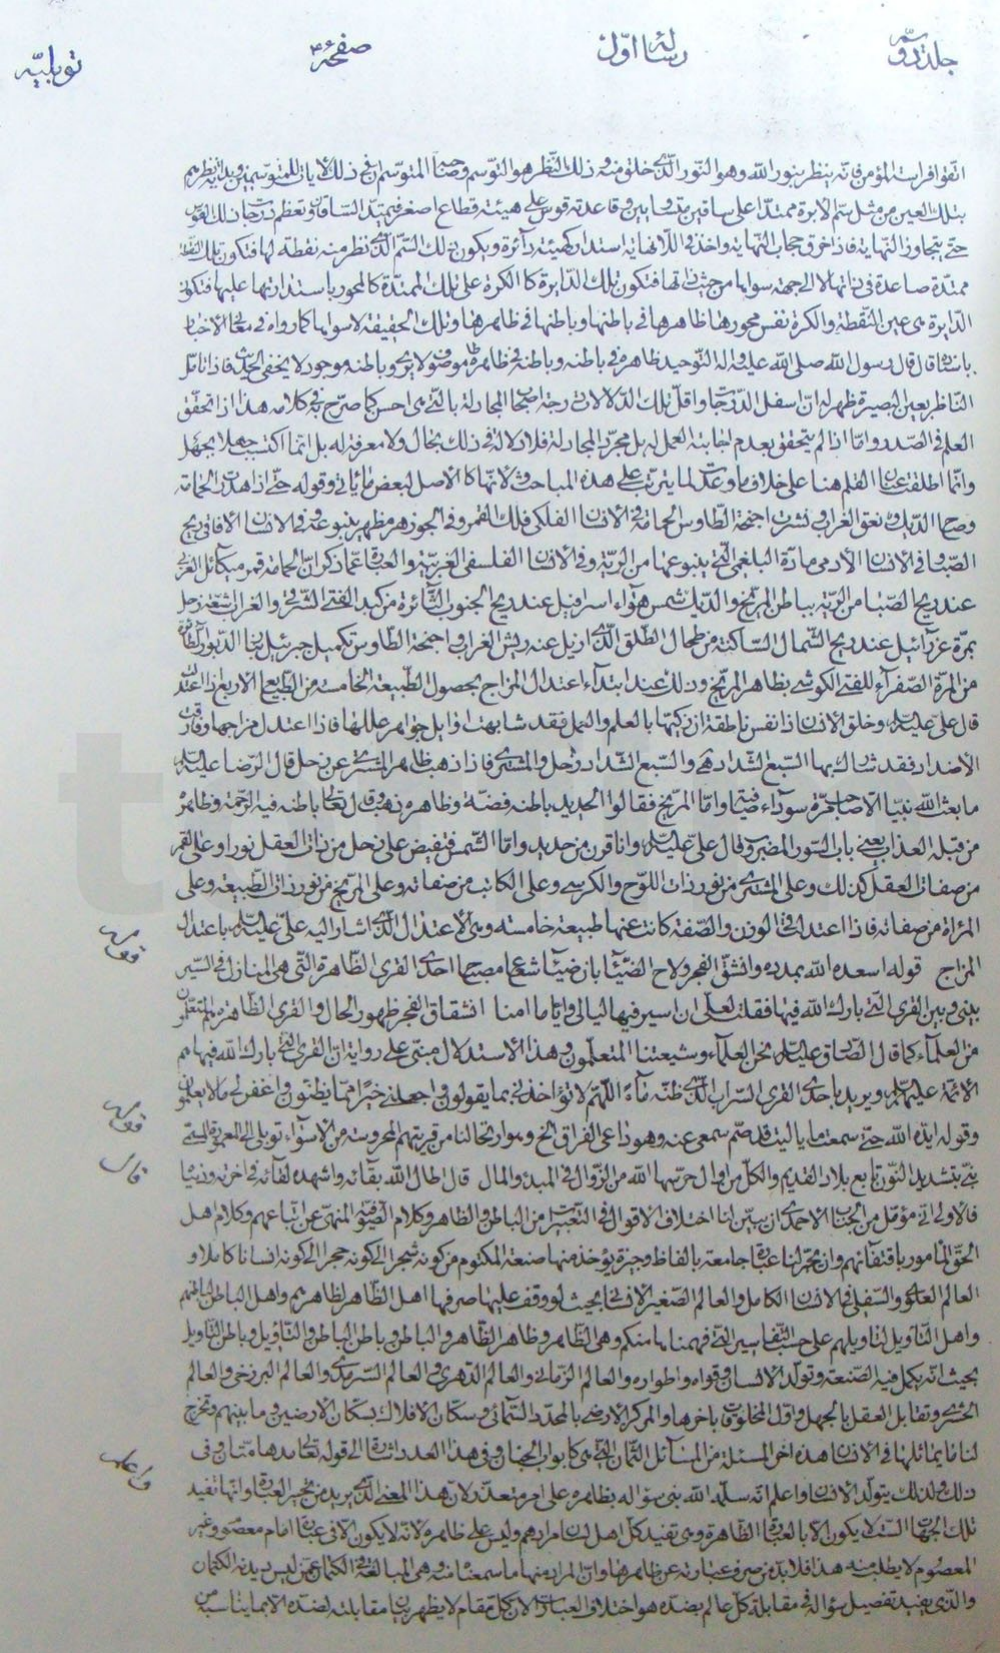 جلد دوم رسالهٔ اوّل صفحهٔ ۴۶ توبلیّه
اتقوا فراسة المؤمن فانه ينظر بنور الله وهو النّور الّذى خلق منه وذلك النّظر هو التوسّم وصاحبها المتوسّم ان فى ذلك لايات للمتوسّمين
بتلك العين من مثل سمّ الابرة ممتدّا على ساقين متساويين وقاعدته قوس على هيئة قطاع اصغر فيمتدّ السّاقان وتعظم درجات ذلك القوس
حتّى يتجاوز النّهاية فاذا خرق حجاب النّهاية واخذ فى اللّانهاية استدار كهيئة دائرة ويكون ذلك السّمّ الّذى نظر منه نقطة لها فتكون تلك النقطة
ممتدّة صاعدة فى ذاتها لا الى جهة سواها من حيث ذاتها فتكون تلك الدّايرة كالكرة على تلك الممتدّة كالمحور باستدارتها عليها فتكون
الدّايرة هى عين النّقطة والكرة نفس محورها ظاهرها فى باطنها وباطنها فى ظاهرها وتلك الحقيقة لا سواها كما رواه فى معانى الاخبار
باسناده قال قال رسول الله صلى الله عليه واله التّوحيد ظاهره فى باطنه وباطنه فى ظاهره ظاهره موصوف لا يرى وباطنه موجود لا يخفى الحديث فاذا تامّل
النّاظر بعين البصيرة ظهر له انّ اسفل الدّرجات واقلّ تلك الدّلالات درجة اصحاب المجادلة بالّتى هى احسن كما صرّح به فى كلامه هذا اذا تحقّق
العلم فى الصّدر وامّا اذا لم يتحقّق بعدم اجابته العمل له بل مجرّد المجادلة فلا دلالة فى ذلك بحال ولا معرفة له بل انّما اكتسب جهلا بجهل
وانّما اطلقت عنان القلم هنا على خلاف ما وعدت لما يترتّب على هذه المباحث ولانّها كالاصل لبعض ما ياتى وقوله حتّى اذا هدرت الحمامة
وصاح الدّيك ونعق الغراب ونشرت اجنحة الطّاوس الحمامة فى الانسان الفلكى فلك القمر وفى الجوزهر مظهر ينبوعه وفى الانسان الافاقى ريح
الصّبا وفى الانسان الادمى مادّة البلغم الّتى ينبوعها من الرّية وفى الانسان الفلسفى الغربيّة والعبارة عمّا ذكر انّ الحمامة قمر ميكائل الغربى
عند ريح الصّبا من الرّية بباطن المرّيخ والدّيك شمس هواء اسرافيل عند ريح الجنوب الثّائرة من كبد الفتى الشّرقى والغراب شعّثه زحل
بمرّة عزرائيل عند ريح الشّمال السّاكنة من طحال الطّلق الّذى ازيل عنه ريش الغراب واجنحة الطّاوس تكميل جبرئيل بنار الدّبور
من المرّة الصّفراء للفتى الكوشى بظاهر المرّيخ وذلك عند ابتداء اعتدال المزاج بحصول الطّبيعة الخامسة من الطّبايع الاربع اذا اعتدلت
قال على عليه السلام وخلق الانسان ذا نفس ناطقة ان زكّيها بالعلم والعمل فقد شابهت اوايل جواهر عللها فاذا اعتدل مزاجها وفارقت
الاضداد فقد شارك بها السّبع الشّداد هى والسّبع الشّداد زحل والمشترى فاذا ذهب ظاهر المشترى عن زحل قال الرّضا عليه السلام
ما بعث الله نبيّا الّا صاحب مرّة سوداء صافية وامّا المرّيخ فقالوا الحديد باطنه فضّة وظاهره ذهب وقال تعالى باطنه فيه الرّحمة وظاهره
من قبله العذاب يعنى باب السّور المضروب وقال على عليه السلام وانا قرن من حديد وامّا الشّمس فتفيض على زحل من ذات العقل نورا وعلى القمر
من صفات العقل كذلك وعلى المشترى من نور ذات اللّوح والكرسى وعلى الكاتب من صفاته وعلى المرّيخ من نور ذات الطّبيعة وعلى
المرأة من صفاته فاذا اعتدلا فى الوزن والصّفة كانت عنها طبيعة خامسة وهى الاعتدال الّذى اشار اليه على عليه السلام باعتدال
المزاج قوله اسعده الله بمدده وانشقّ الفجر ولاح الضّياء بان ضياء شعاع مصباح احدى القرى الظّاهرة الّتى هى المنازل فى السّير
بينى وبين القرى الّتى بارك الله فيها فقلت لعلّى ان اسير فيها ليالى وايّاما امنا انشقاق الفجر ظهور الحال والقرى الظّاهرة المتعلّمون
من العلماء كما قال الصّادق عليه السلام نحن العلماء وشيعتنا المتعلّمون وهذا الاستدلال مبنى على رواية انّ القرى الّتى بارك الله فيها هم
الائمّة عليهم السلام ويريد باحدى القرى السّراب الّذى ظنّه ماء اللّهمّ لا تؤاخذنى بما يقولون واجعلنى خيرا ممّا يظنّون واغفر لى ما لا يعلمون
وقوله ايّده الله حتّى سمعت ما يا ليت قد صمّ سمعى عنه وهو داعى الفراق الخ وهو ارتحالنا من قريتهم المحروسة من الاسواء توبلى الى المعمورة
بنّى بتشديد النّون تابع بلاد القديم والكلّ من اوال حرسها الله من الزّوال فى المبدء والمال قال اطال الله بقائه واشهده لقائه فى اخرته ودنياه
فالاولى انّى مؤمّل من الجناب الاحمدى ان يبيّن لنا اختلاف الاقوال فى التّعبير من الباطن والظّاهر وكلام الصّوفيّة المنهىّ عن اتّباعهم وكلام اهل
الحقّ المأمور باقتفائهم وان يحرّر لنا عبارة جامعة بالفاظ وجيزة يؤخذ منها صنعة المكتوم من كونه شجرا الى كونه حجرا الى كونه انسانا كاملا و
العالم العلوى والسّفلى فى الانسان الكامل والعالم الصّغير الانسانى بحيث لو وقف عليها صرفها اهل الظّاهر لظاهرهم واهل الباطن لباطنهم
واهل التّأويل لتأويلهم على حسب التّفاسير الّتى فهمناها منكم وهى الظّاهر وظاهر الظّاهر والباطن وباطن الباطن والتّأويل وباطن التّأويل
بحيث انّه يكمل فيه الصّنعة وتولّد الانسان وقواه واطواره والعالم الزّمانى والعالم الدّهرى والعالم السّرمدى والعالم البرزخى والعالم
الحشرى وتقابل العقل بالجهل واوّل المخلوقات باخرها والمركز الارضى بالمحدّد السّمائى وسكّان الافلاك بسكّان الارضين وما بينهم وتخرج
لنا ما يماثلها فى الانسان هذه اخر المسئلة من المسائل الثّمان الّتى هى كابواب الجنان وفى هذا العدد اشارة الى قوله تعالى مدهامّتان وفى
ذلك وكذلك يتولّد الانسان واعلم انّه سلّمه الله بنى سؤاله بظاهره على امر متعذّر لانّ هذا المعنى الّذى يريد من تحرير العبارة وانّها تفيد
تلك الجهات السّت لا يكون الّا بالعبارة الظّاهرة وهى تفيد كلّ اهل لسان مرادهم وليس على ظاهره لانّه لا يكون الّا فى عبارة امام معصوم وغير
المعصوم لا يطلب منه هذا فلا بدّ من صرف عبارته عن ظاهرها وانّ المراد منها ما سمعناه منه وهى المبالغة فى الكتمان عمّن ليس ديدنه الكتمان
والّذى يفيد تفصيل سؤاله فى مقابلة كلّ عالم بضدّه هو اختلاف العبارات لانّ كلّ مقام لا يظهر بيان مقابلته لضدّه الّا بما يناسبه من